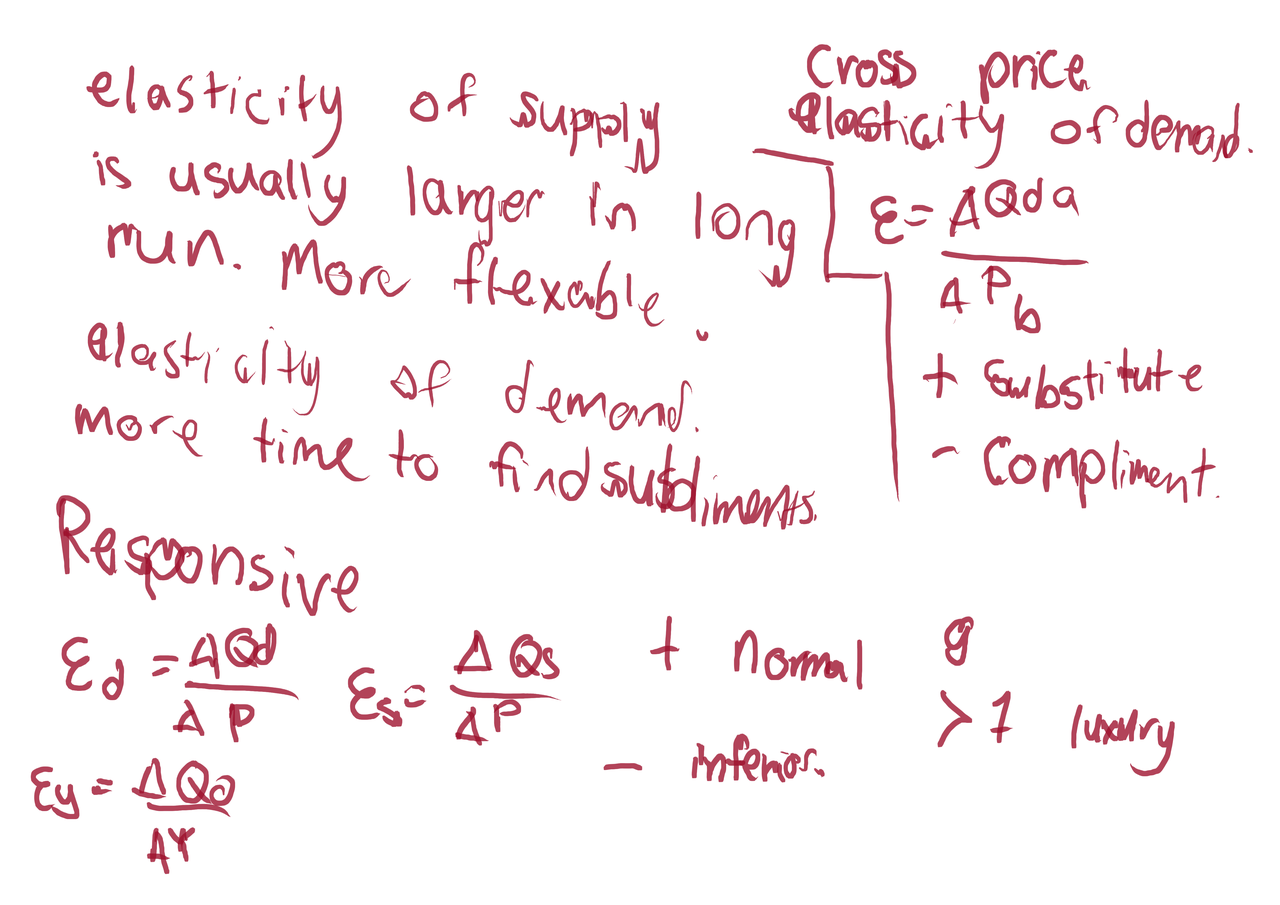 elasticity of supply
is usually larger in long
run. More flexable.
elasticity of demand.
more time to find
Cross price
elasticity of demad.
ε = ΔQda
ΔPb
+ substitute
- Compliment.
Responsive
εd = ΔQd
ΔP
εs = ΔQs
ΔP
εy = ΔQd
ΔY
+ normal
- inferior.
g
> 1 luxury